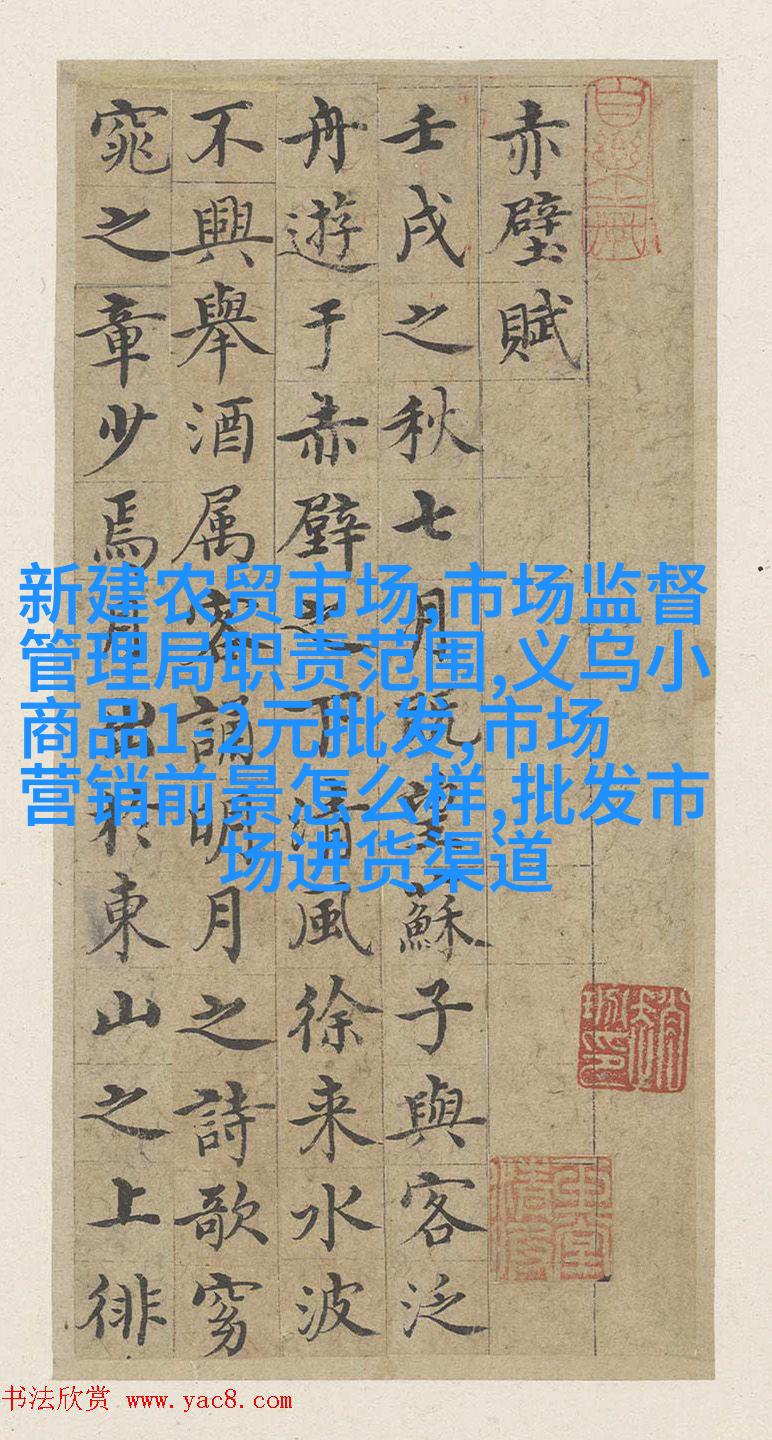 赤壁賦
壬戌之秋七月既望蘇子與客泛
舟遊于赤壁之下清風徐来水波
不興舉酒属客誦明月之詩歌窈
窕之章少焉月出於東山之上徘
新建农贸市场,市场监督
管理局职责范围,义乌小
商品1-2元批发,市场
营销前景怎么样,批发市
场进货渠道
书法欣赏 www.yac8.com